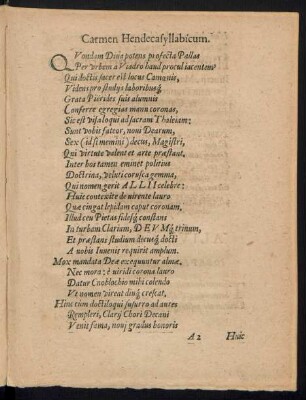 Carmen Hendecasyllabicum.
QVondam Diva potens profecta Pallas
Per urbem à Viadro haud procul iacentem
Qui doctis sacer est locus Camœnis,
Videns pro studijs laboribusq́;
Grata Pierides sui alumnis
Conferre egregias manu coronas,
Sic est visa loqui ad sacram Thaleiam;
Sunt vobis fateor, noni Dearum,
Sex (id si memini) decus, Magistri,
Qui virtute valent et arte præstant.
Inter hos tamen eminet poleius
Doctrina, veluti corusca gemma,
Qui nomen gerit ALLII celebre:
Huic contexite de virente lauro
Quæ cingat lepidam caput coronam,
Istud ceu Pietas fidesq́; constans
In turbam Clariam, DEVMq́; trinum,
Et præstans studium decusq́; docti
A nobis Iuvenis requirit amplum.
Mox mandata Deæ exequuntur almæ,
Nec mora; è viridi corona lauro
Datur Cnoblochio mihi colendo
Vt nomen vireat diuq́; crescat,
Hinc tum doctiloqui susurro adantes
Rempleri, Clarij Chori Decani
Venit fama, novi gradus honoris
A 2
Huic